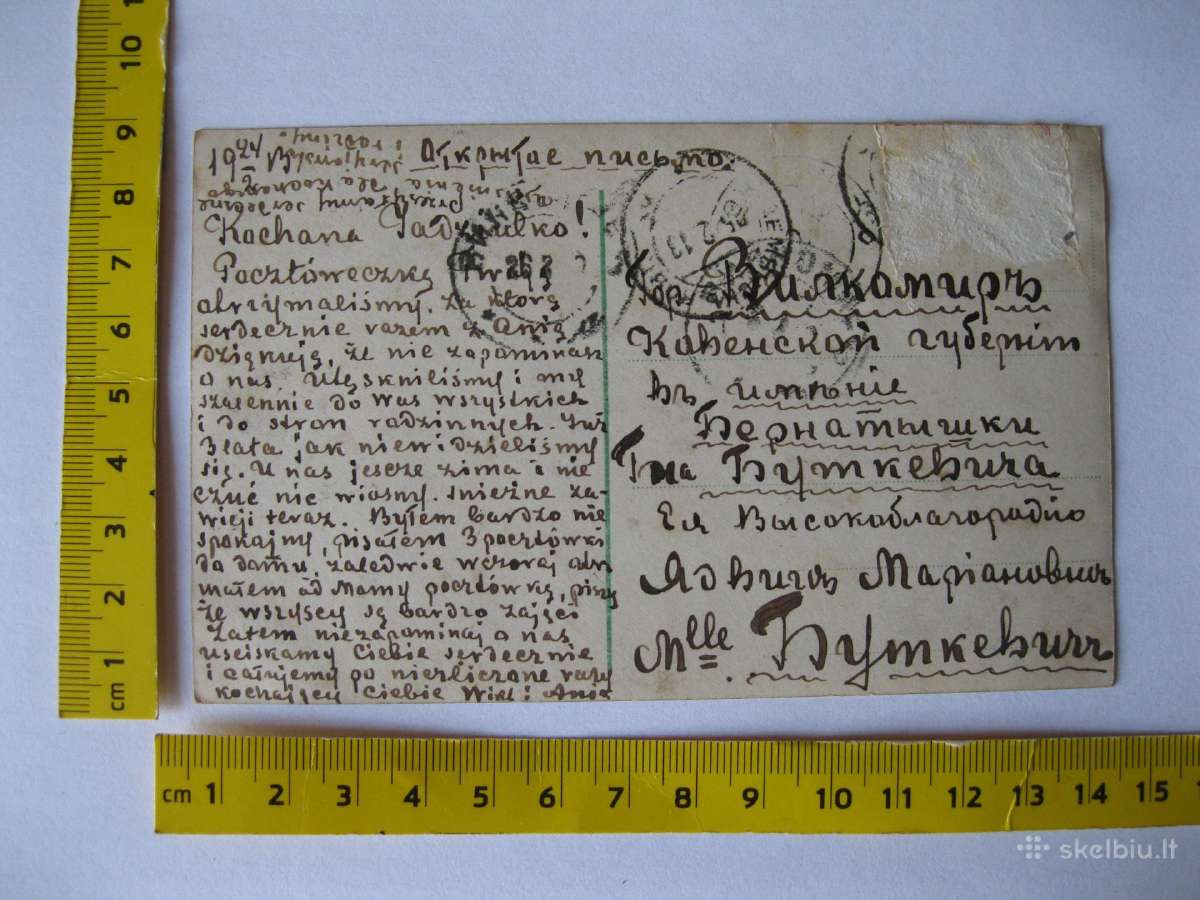 Открытае письмо.
Kochana Jadziulko!
Pocztóweczkę Twoją
atrzymaliśmy. Za którą
serdecznie razem z Anią
dziękuję, że nie zapominasz
o nas. Utęskniliśmy i my
szalennie do was wszystkich
i do stron radzinnych. Już
3 lata jak niewidzieliśmy
się. U nas jescze zima i nie
czuć nic wiosny. Snieżne za-
wieji teraz. Byłem bardzo nie
spokajny, pisałem 3 pocztówki
da damu, zaledwie wczoraj
małem ad Mamy pocztówkę, piszą
że wszyscy są bardzo zajęci
Zatem niezapominaj o nas
usciskamy Ciebie serdecznie
i całujemy po niezliczone razy
kochający Ciebie Wikt i Ania
Гор. Вилкамиръ
Ковенской губернiи
въ имѣнiе
Бернатышки
Гна Буткевича
Ея Высокоблагородiю
Ядвигѣ Марiановнѣ
Mlle. Буткевичъ
cm 1 2 3 4 5 6 7 8 9 10
cm 1 2 3 4 5 6 7 8 9 10 11 12 13 14 15
skelbiu.lt